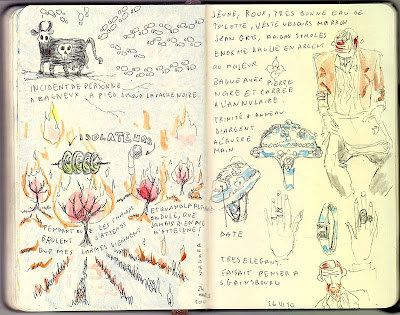 INCIDENT DE PERSONNE
A BAGNEUX, A PIED JUSQU'A LA VACHE NOIRE.
ISOLATEURS
PENDANT QUE LES CHAMPS
BRULENT J'ATTENDS
QUE MES LARMES VIENNENT
ET QUAND LA PLAINE
ONDULE, QUE
JAMAIS RIEN NE
M'ATTEIGNE!
JEUNE, ROUX, TRES BONNE EAU DE
TOILETTE, VESTE VELOURS MARRON
JEAN GRIS, ADIDAS
ENORME BAGUE EN ARGENT
AU MAJEUR
BAGUE AVEC PIERRE
NOIRE ET CARREE
A L'ANNULAIRE.
TRINITE + ANNEAU
D'ARGENT
A L'AUTRE
MAIN
DATE
TRES ELEGANT.
FAISAIT PENSER A
S. GAINSBOURG
26.11.10